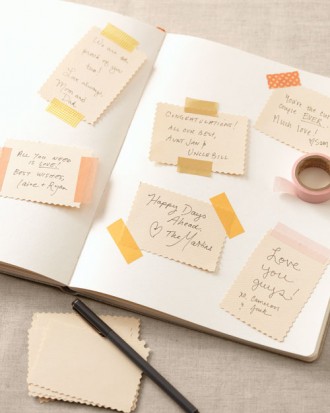 We are so
proud of you
two!
Love always,
Mom and
Dad
ALL YOU NEED
IS LOVE!
BEST WISHES,
CONGRATULATIONS!
ALL OUR BEST,
AUNT JAN &
UNCLE BILL
Happy Days
Ahead,
The Martins
You're the
couple EVER
Much love!
Love
you
guys!
XO, Cameron
&